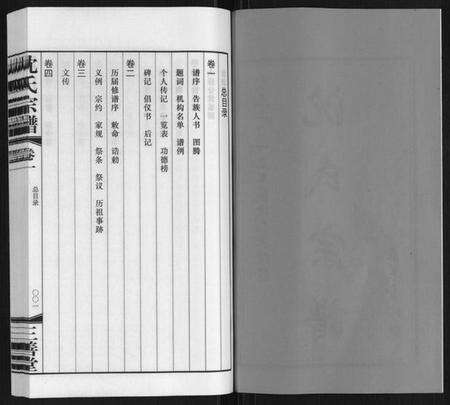 总目录
卷一
谱序 告族人书 图腾
题词 机构名单 谱例
个人传记 一览表 功德榜
碑记 倡仪书 后记
卷二
历届修谱序 敕命 诰勅
义例 宗约 家规 祭条 祭议 历祖事跡
卷三
文传
卷四
沈氏宗谱
卷一
总目录
〇〇一
三善堂